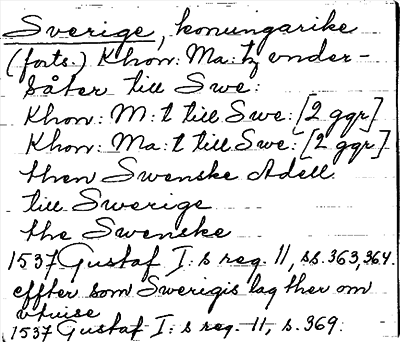 Sverige, konungarike
(forts.) Khon: Ma:tz vnder-
såter till Swe:
Khon: M:t till Swe: [2 ggr]
Khon: Ma:t till Swe: [2 ggr]
then Swenske Adell
till Swerige
the Swenske
1537 Gustaf I:s reg. 11, ss. 363, 364.
effter som Swerigis lag ther om
vtuise
1537 Gustaf I:s reg. 11, s. 369.